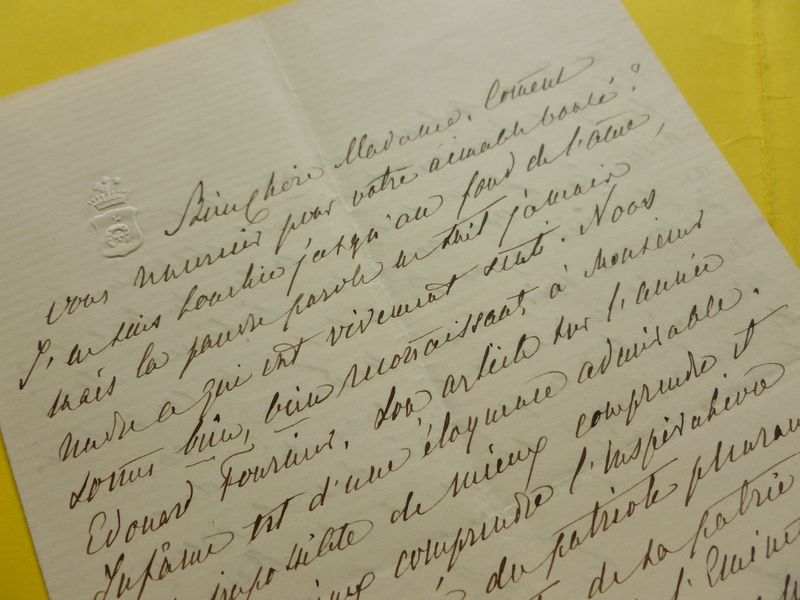 Bien Chère Madame, Coment
vous remercier pour votre aimable bonté?
J'en suis touchée jusqu'au fond de l'âme,
mais la pauvre parole ne sait jamais
rendre ce qui est vivement senti. Nous
somes bien, bien reconnaissants à Monsieur
Edouard Fournier. Son article sur l'année
Infâme est d'une éloquence admirable.
impossible de mieux comprendre et
mieux comprendre l'inspiration
du patriote
de la patrie
l'Éminent